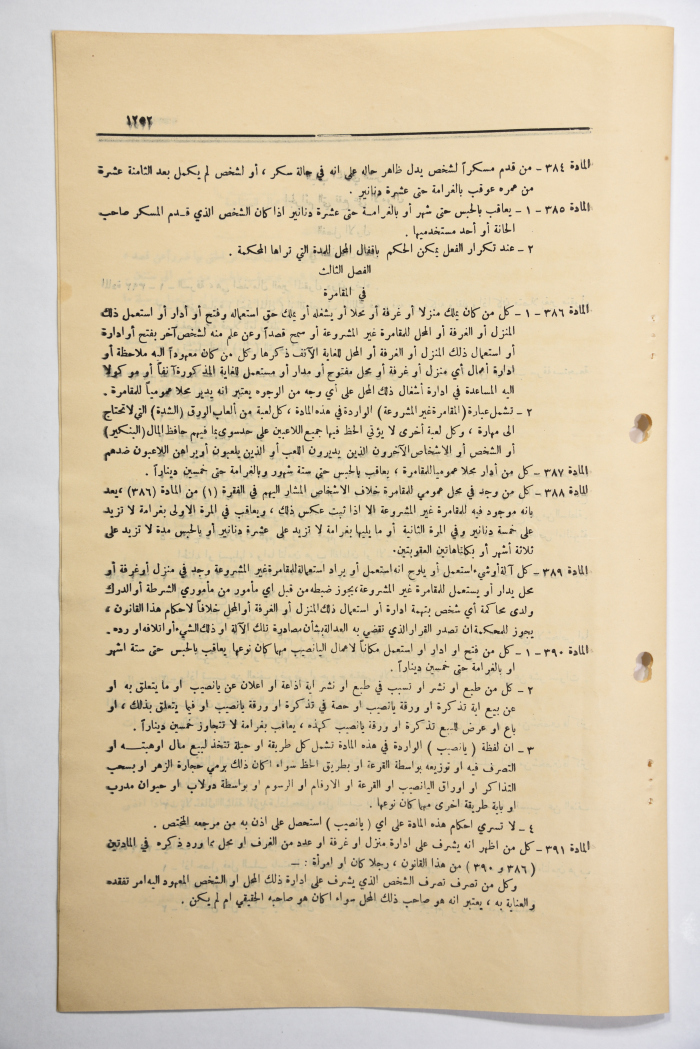 ١٢٥٢
المادة ٣٨٤ - من قدم مسكراً لشخص يدل ظاهر حاله على انه في حالة سكر ، أو لشخص لم يكمل بعد الثامنة عشرة
من عمره عوقب بالغرامة حتى عشرة دنانير .
المادة ٣٨٥ - ١ - يعاقب بالحبس حتى شهر أو بالغرامة حتى عشرة دنانير اذا كان الشخص الذي قدم المسكر صاحب
الحانة أو أحد مستخدميها .
٢ - عند تكرار الفعل يمكن الحكم باقفال المحل للمدة التي تراها المحكمة .
الفصل الثالث
في المقامرة
المادة ٣٨٦ - ١ - كل من كان يملك منزلا أو غرفة أو محلا أو يشغله أو يملك حق استعماله وفتح أو أدار أو استعمل ذلك
المنزل أو الغرفة أو المحل للمقامرة غير المشروعة أو سمح قصداً وعن علم منه لشخص آخر بفتح أو ادارة
أو استعمال ذلك المنزل أو الغرفة أو المحل للغاية الآنف ذكرها وكل من كان معهوداً اليه ملاحظة أو
ادارة أعمال أي منزل أو غرفة أو محل مفتوح أو مدار أو مستعمل للغاية المذكورة آنفاً أو موكولا
اليه المساعدة في ادارة أشغال ذلك المحل على أي وجه من الوجوه يعتبر انه يدير محلا عمومياً للمقامرة .
٢ - تشمل عبارة (المقامرة غير المشروعة) الواردة في هذه المادة ، كل لعبة من ألعاب الورق (الشدة) التي لا تحتاج
الى مهارة ، وكل لعبة أخرى لا يؤتي الحظ فيها جميع اللاعبين على حد سوى بما فيهم حافظ المال (البنكير)
أو الشخص أو الاشخاص الآخرون الذين يديرون اللعب أو الذين يلعبون أو يراهن اللاعبون ضدهم
المادة ٣٨٧ - كل من أدار محلا عمومياً للمقامرة ، يعاقب بالحبس حتى ستة شهور وبالغرامة حتى خمسين ديناراً .
المادة ٣٨٨ - كل من وجد في محل عمومي للمقامرة خلاف الاشخاص المشار اليهم في الفقرة (١) من المادة (٣٨٦) ، يعد
بانه موجود فيه للمقامرة غير المشروعة الا اذا ثبت عكس ذلك ، ويعاقب في المرة الاولى بغرامة لا تزيد
على خمسة دنانير وفي المرة الثانية أو ما يليها بغرامة لا تزيد على عشرة دنانير أو بالحبس مدة لا تزيد على
ثلاثة أشهر أو بكلتا هاتين العقوبتين.
المادة ٣٨٩ - كل آلة أو شيء استعمل أو يلوح انه استعمل أو يراد استعماله للمقامرة غير المشروعة وجد في منزل أو غرفة أو
محل يدار أو يستعمل للمقامرة غير المشروعة، يجوز ضبطه من قبل اي مأمور من مأموري الشرطة أو الدرك
ولدى محاكمة أي شخص بتهمة ادارة أو استعمال ذلك المنزل أو الغرفة أو المحل خلافاً لاحكام هذا القانون ،
يجوز للمحكمة ان تصدر القرار الذي تقضي به العدالة بشأن مصادرة تلك الآلة او ذلك الشيء أو اتلافه او رده .
المادة ٣٩٠ - ١ - كل من فتح او ادار او استعمل مكاناً لاعمال اليانصيب مهما كان نوعها يعاقب بالحبس حتى ستة اشهر
او بالغرامة حتى خمسين ديناراً .
٢ - كل من طبع او نشر او تسبب في طبع او نشر اية اذاعة او اعلان عن يانصيب او ما يتعلق به او
عن بيع اية تذكرة او ورقة يانصيب او حصة في تذكرة او ورقة يانصيب او فيما يتعلق بذلك ، او
باع او عرض للبيع تذكرة او ورقة يانصيب كهذه ، يعاقب بغرامة لا تتجاوز خمسين ديناراً .
٣ - ان لفظة ( يانصيب ) الواردة في هذه المادة تشمل كل طريقة او حيلة تتخذ لبيع مال او هبته او
التصرف فيه او توزيعه بواسطة القرعة او بطريق الحظ سواء اكان ذلك برمي حجارة الزهر او بسحب
التذاكر او اوراق اليانصيب او القرعة او الارقام او الرسوم او بواسطة دولاب او حيوان مدرب
او باية طريقة اخرى مهما كان نوعها .
٤ - لا تسري احكام هذه المادة على اي ( يانصيب ) استحصل على اذن به من مرجعه المختص .
المادة ٣٩١ - كل من اظهر انه يشرف على ادارة منزل او غرفة او عدد من الغرف او محل مما ورد ذكره في المادتين
( ٣٨٦ و ٣٩٠ ) من هذا القانون ، رجلا كان او امرأة : —
وكل من تصرف تصرف الشخص الذي يشرف على ادارة ذلك المحل او الشخص المعهود اليه امر تفقده
والعناية به ، يعتبر انه هو صاحب ذلك المحل سواء اكان هو صاحبه الحقيقي ام لم يكن .